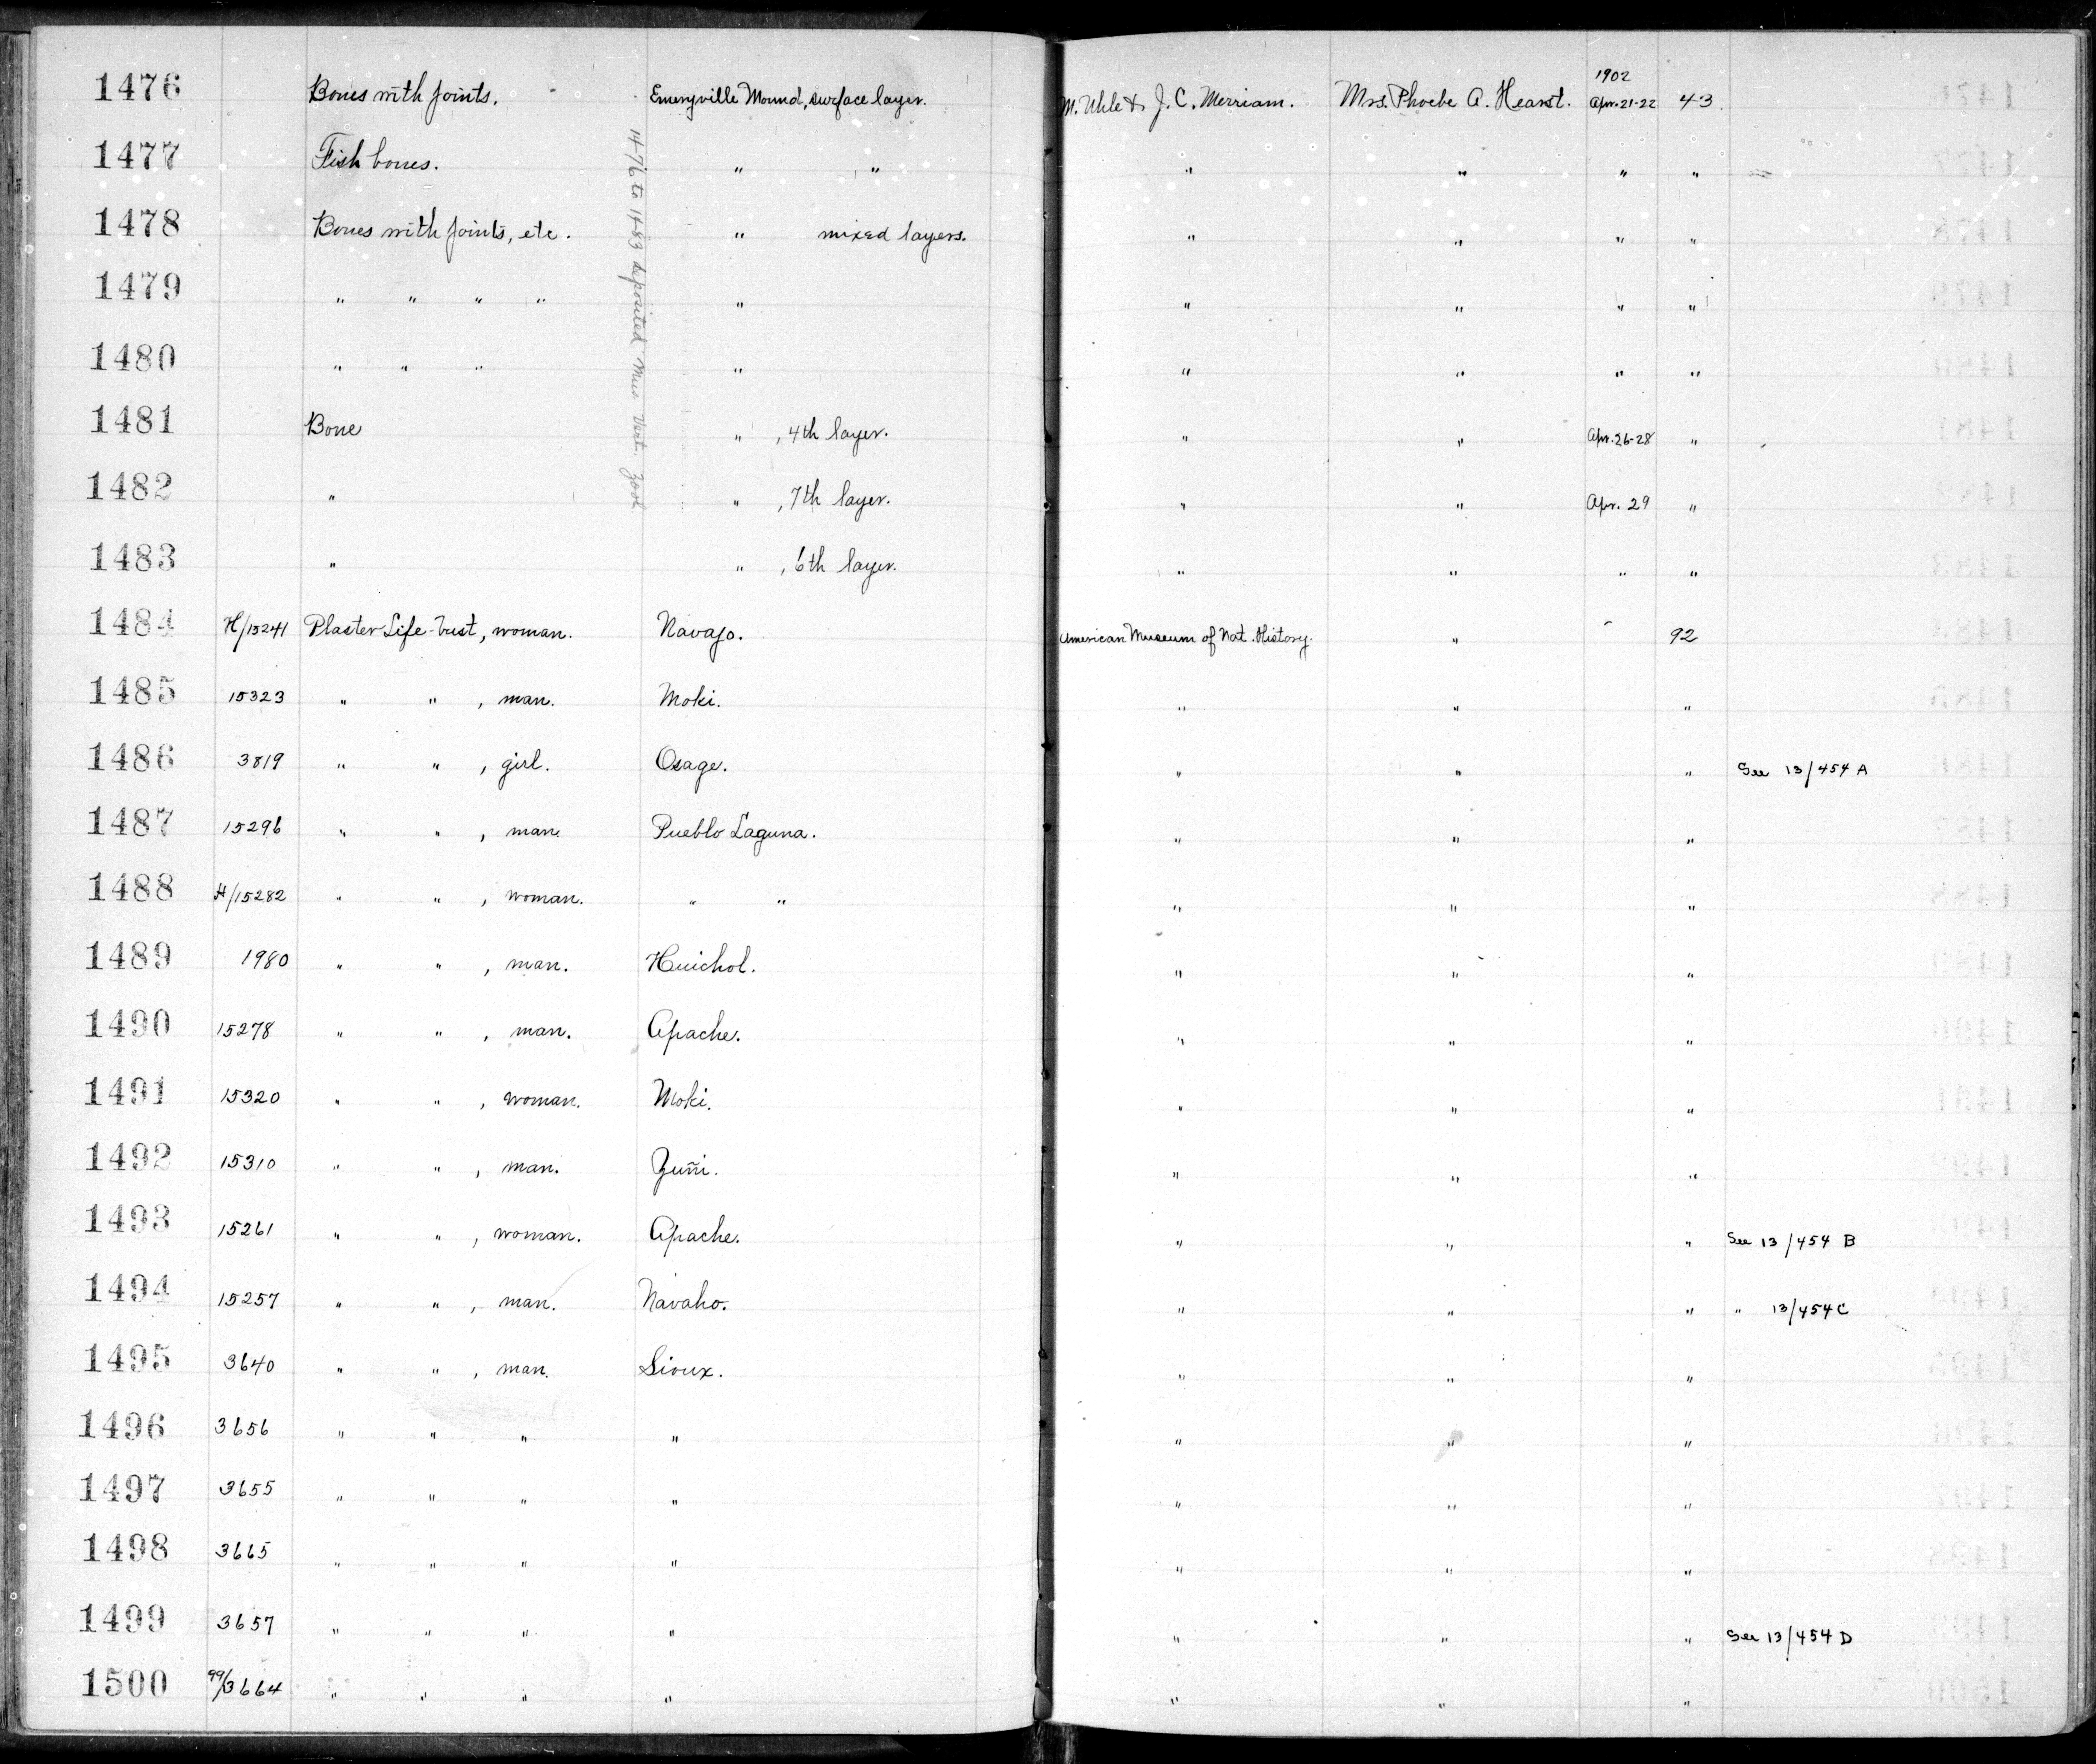 1476 Bones with joints. Emeryville Mound, surface layer. M. Uhle & J. C. Merriam. Mrs. Phoebe A. Hearst. 1902 Apr. 21-22 43
1477 Fish bones. " " " " " "
1478 Bones with joints, etc. " mixed layers. " " " "
1479 " " " " " " " " "
1480 " " " " " " " "
1481 Bone " , 4th layer. " " Apr. 26-28 "
1482 " " , 7th layer. " " Apr. 29 "
1483 " " , 6th layer. " " " "
1476 to 1483 deposited Mus Vert. Zool
1484 H/15241 Plaster Life-bust, woman. Navajo. American Museum of Nat. History. " 92
1485 15323 " " , man. Moki. " " "
1486 3819 " " , girl. Osage. " " " See 13/454 A
1487 15296 " " , man. Pueblo Laguna. " " "
1488 H/15282 " " , woman. " " " " "
1489 1980 " " , man. Huichol. " " "
1490 15278 " " , man. Apache. " " "
1491 15320 " " , woman. Moki. " " "
1492 15310 " " , man. Zuñi. " " "
1493 15261 " " , woman. Apache. " " " See 13/454 B
1494 15257 " " , man. Navaho. " " " " 13/454 C
1495 3640 " " , man. Sioux. " " "
1496 3656 " " " " " " "
1497 3655 " " " " " " "
1498 3665 " " " " " " "
1499 3657 " " " " " " " See 13/454 D
1500 99/3664 " " " " " " "